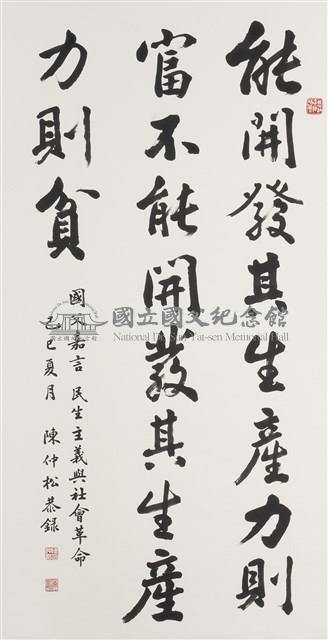 能開發其生產力則
富不能開發其生產
力則貧
國父嘉言 民生主義與社會革命
己巳夏月 陳仲松恭錄
國立國父紀念館
National Dr. Sun Yat-sen Memorial Hall